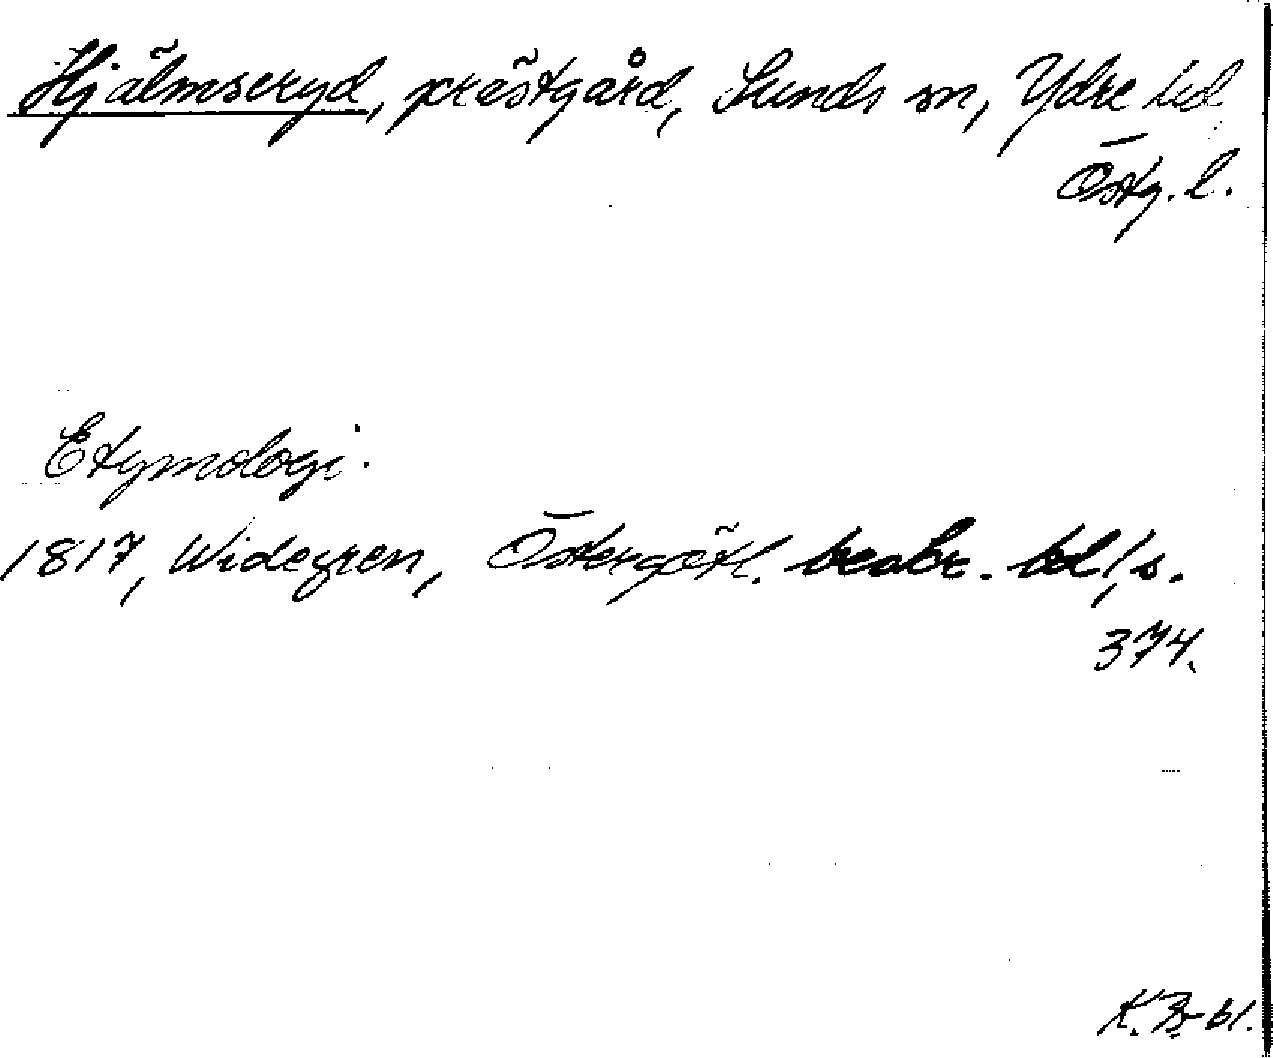 Hjälmseryd, prästgård, Sunds sn, Ydre hd
Östg. l.
Etymologi.
1817, Widegren, Östergötl. beskr. bd 1, s.
374.
K. B-61.